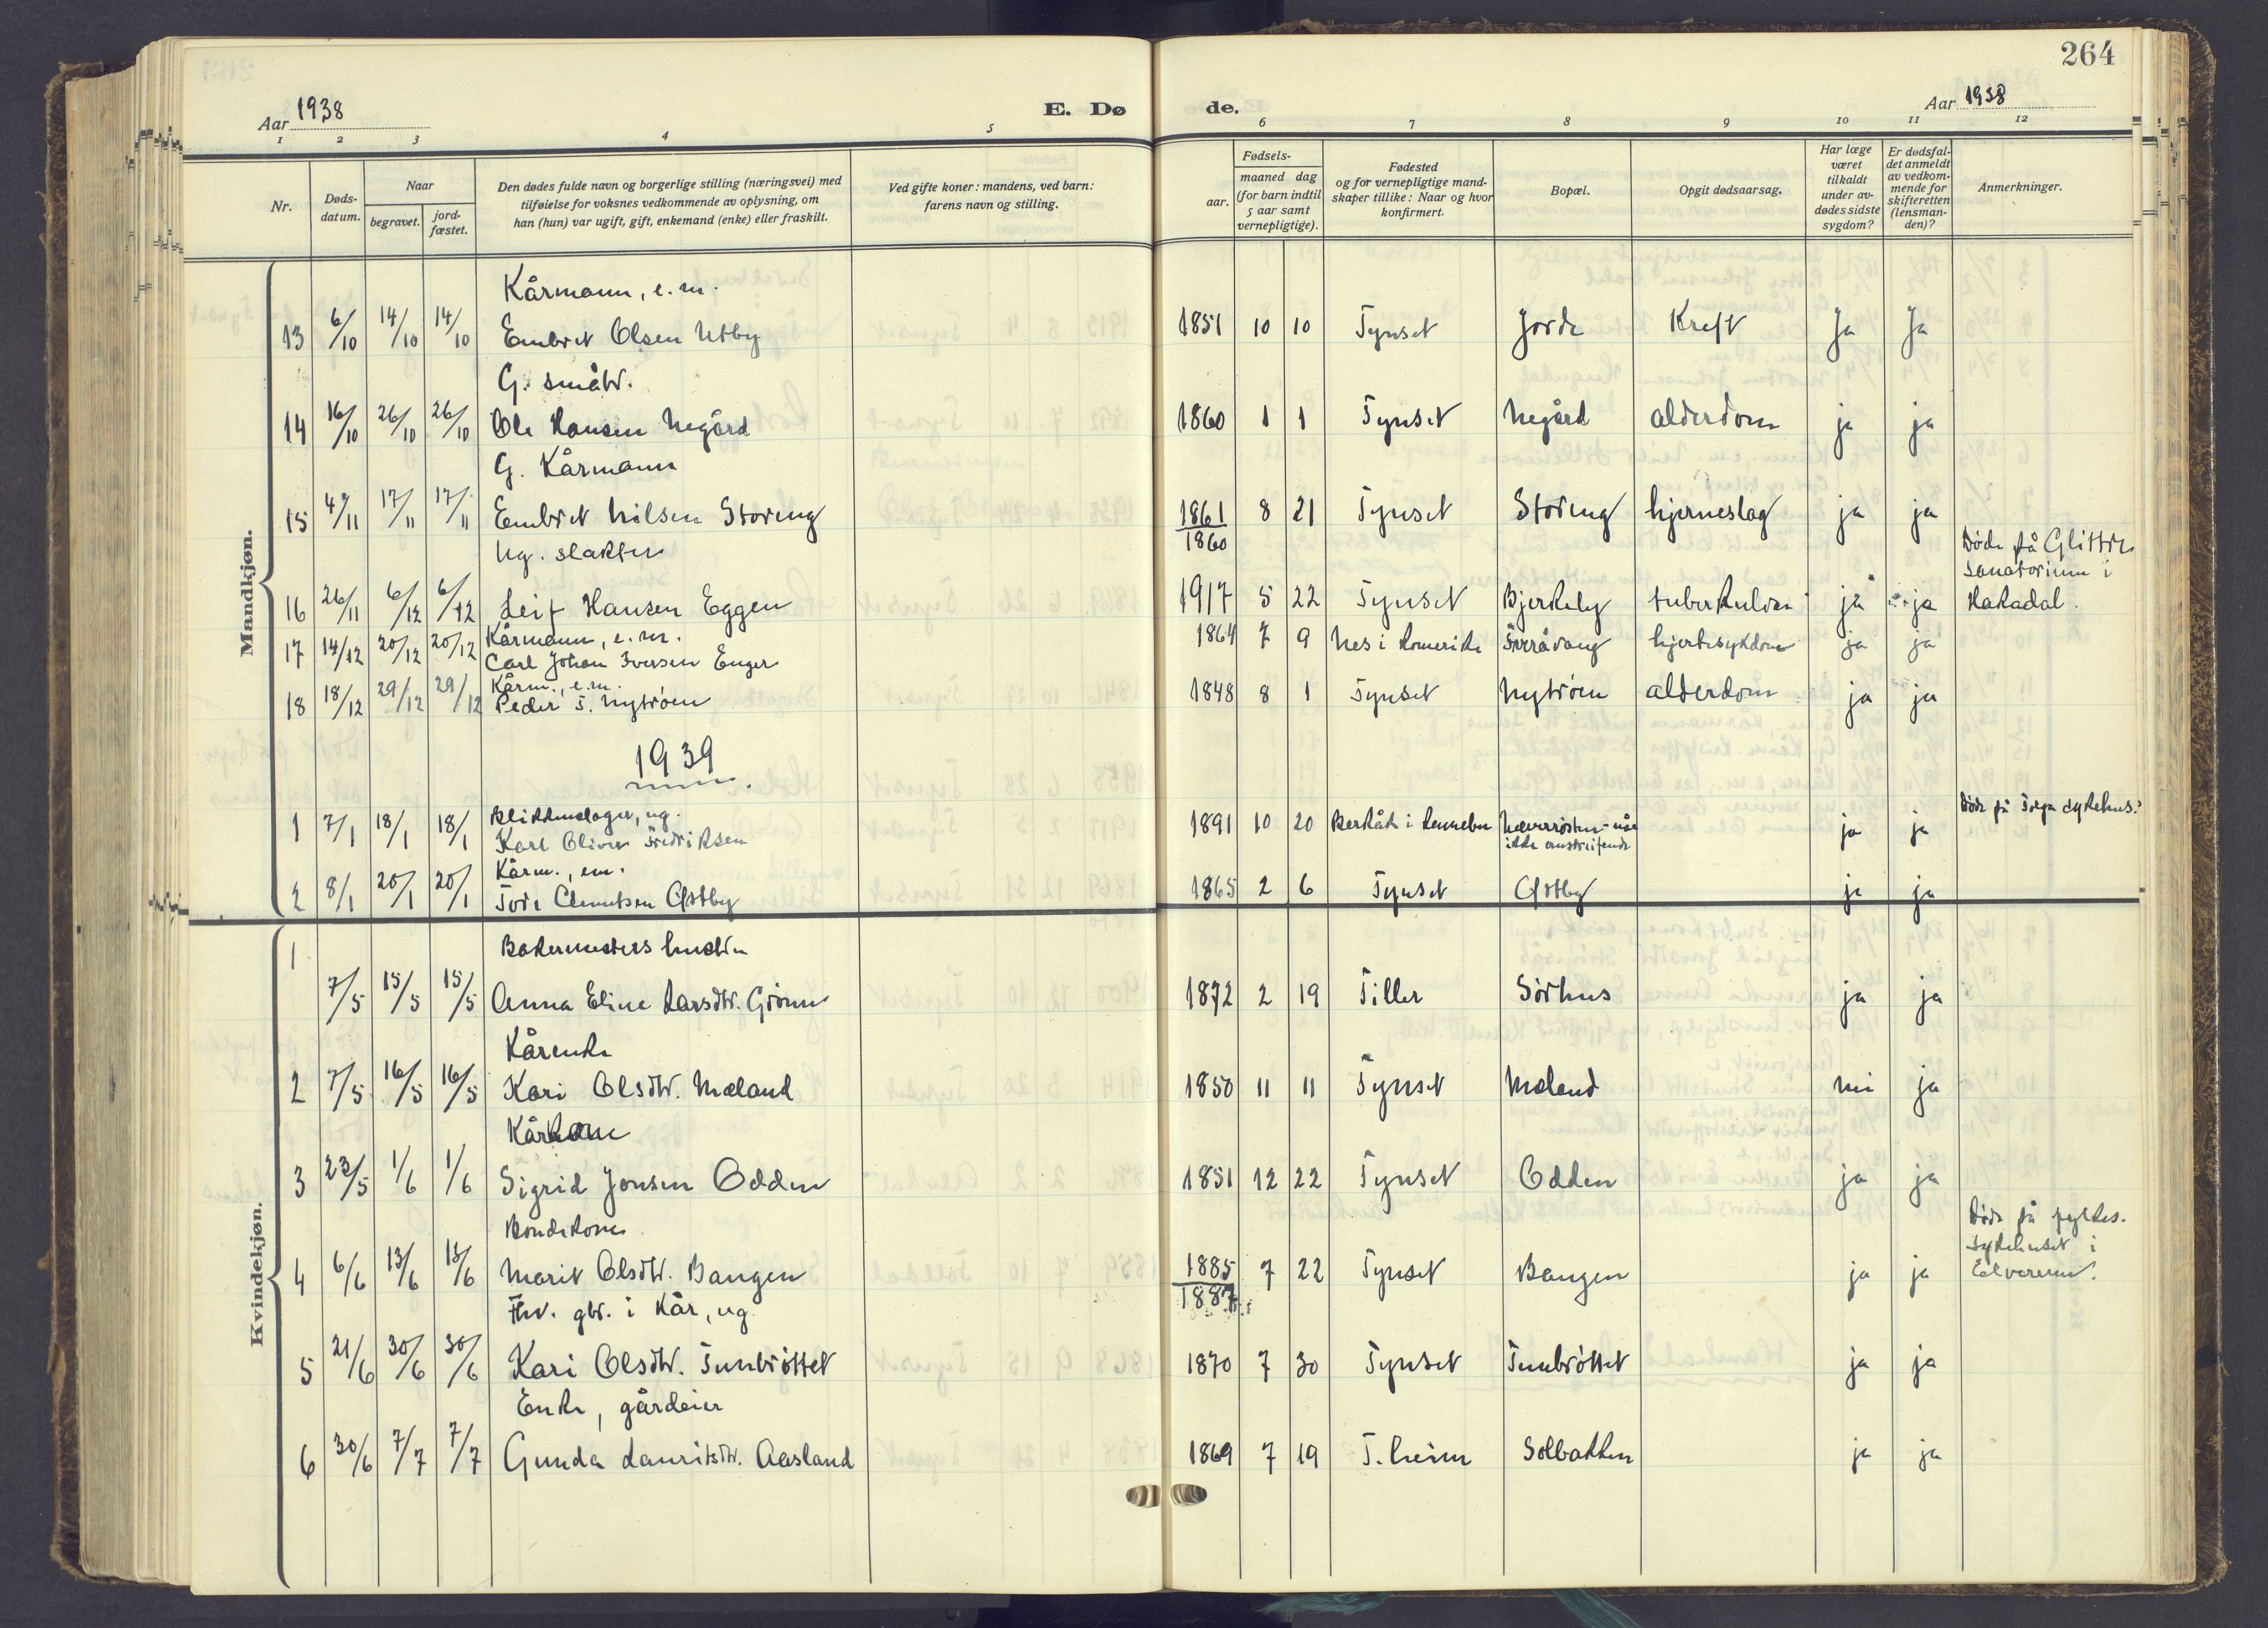 264
Aar 1938
E. Dø
de.
Aar 1938
1 2 3 4 5 6 7 8 9 10 11 12
Nr.
Døds-
datum.
Naar
begravet.
jord-
fæstet.
Den dødes fulde navn og borgerlige stilling (næringsvei) med
tilføielse for voksnes vedkommende av oplysning, om
han (hun) var ugift, gift, enkemand (enke) eller fraskilt.
Ved gifte koner: mandens, ved barn:
farens navn og stilling.
Fødsels-
aar.
maaned dag
(for barn indtil
5 aar samt
vernepligtige).
Fødested
og for vernepligtige mand-
skaper tillike: Naar og hvor
konfirmert.
Bopæl.
Opgit dødsaarsag.
Har læge
været
tilkaldt
under av-
dødes sidste
sygdom?
Er dødsfal-
det anmeldt
av vedkom-
mende for
skifteretten
(lensman-
den)?
Anmerkninger.
Mandkjøn.
Kårmann, e.m.
13 6/10 14/10 14/10 Embret Olsen Utby 1851 10 10 Tynset Jorde Kreft Ja Ja
G. småbr.
14 16/10 26/10 26/10 Ole Hansen Negård 1860 1 1 Tynset Negård alderdom ja ja
G. Kårmann
15 4/11 17/11 17/11 Embret Nilsen Storeng 1861 8 21 Tynset Storeng hjerneslag ja ja
1860
Ug. slakter
Døde på Glittre
Sanatorium i
16 26/11 6/12 6/12 Leif Hansen Eggen 1917 5 22 Tynset Bjerkely tuberkulose ja ja Hakadal.
Kårmann, e.m.
17 14/12 20/12 20/12 Carl Johan Iversen Enger 1864 7 9 Nes i Romerike hjertesykdom ja ja
Kårm., e.m.
18 18/12 29/12 29/12 Peder T. Nytrøen 1848 8 1 Tynset Nytrøen alderdom ja ja
1939
Blikkenslager, ug.
1 7/1 18/1 18/1 Karl Oliver Fredriksen 1891 10 20 Berkåk i Rennebu ja ja Døde på Tolga sykehus.
ikke omstreifende
Kårm., em.
2 8/1 20/1 20/1 Tore Clemetsen Østby 1865 2 6 Tynset Østby ja ja
Kvindekjøn.
1 Bakermesters hustru
7/5 15/5 15/5 Anna Eline Larsdtr. Grønn 1872 2 19 Tiller Sørhus ja ja
Kårenke
2 7/5 16/5 16/5 Kari Olsdtr. Mæland 1850 11 11 Tynset Mæland nei ja
Kårkone
3 23/5 1/6 1/6 Sigrid Jonsen Odden 1851 12 22 Tynset Odden ja ja
Bondekone
4 6/6 13/6 13/6 Marit Olsdtr. Bangen 1885 7 22 Tynset Bangen ja ja
1887
Døde på fylkes.
sykehuset i
Elverum.
Fhv. gbr. i kår, ug.
5 21/6 30/6 30/6 Kari Olsdtr. Tunbrøttet 1870 7 30 Tynset Tunbrøttet ja ja
Enke, gårdeier
6 30/6 7/7 7/7 Gunda Lauritsdtr. Aasland 1869 7 19 T.heim Solbakken ja ja